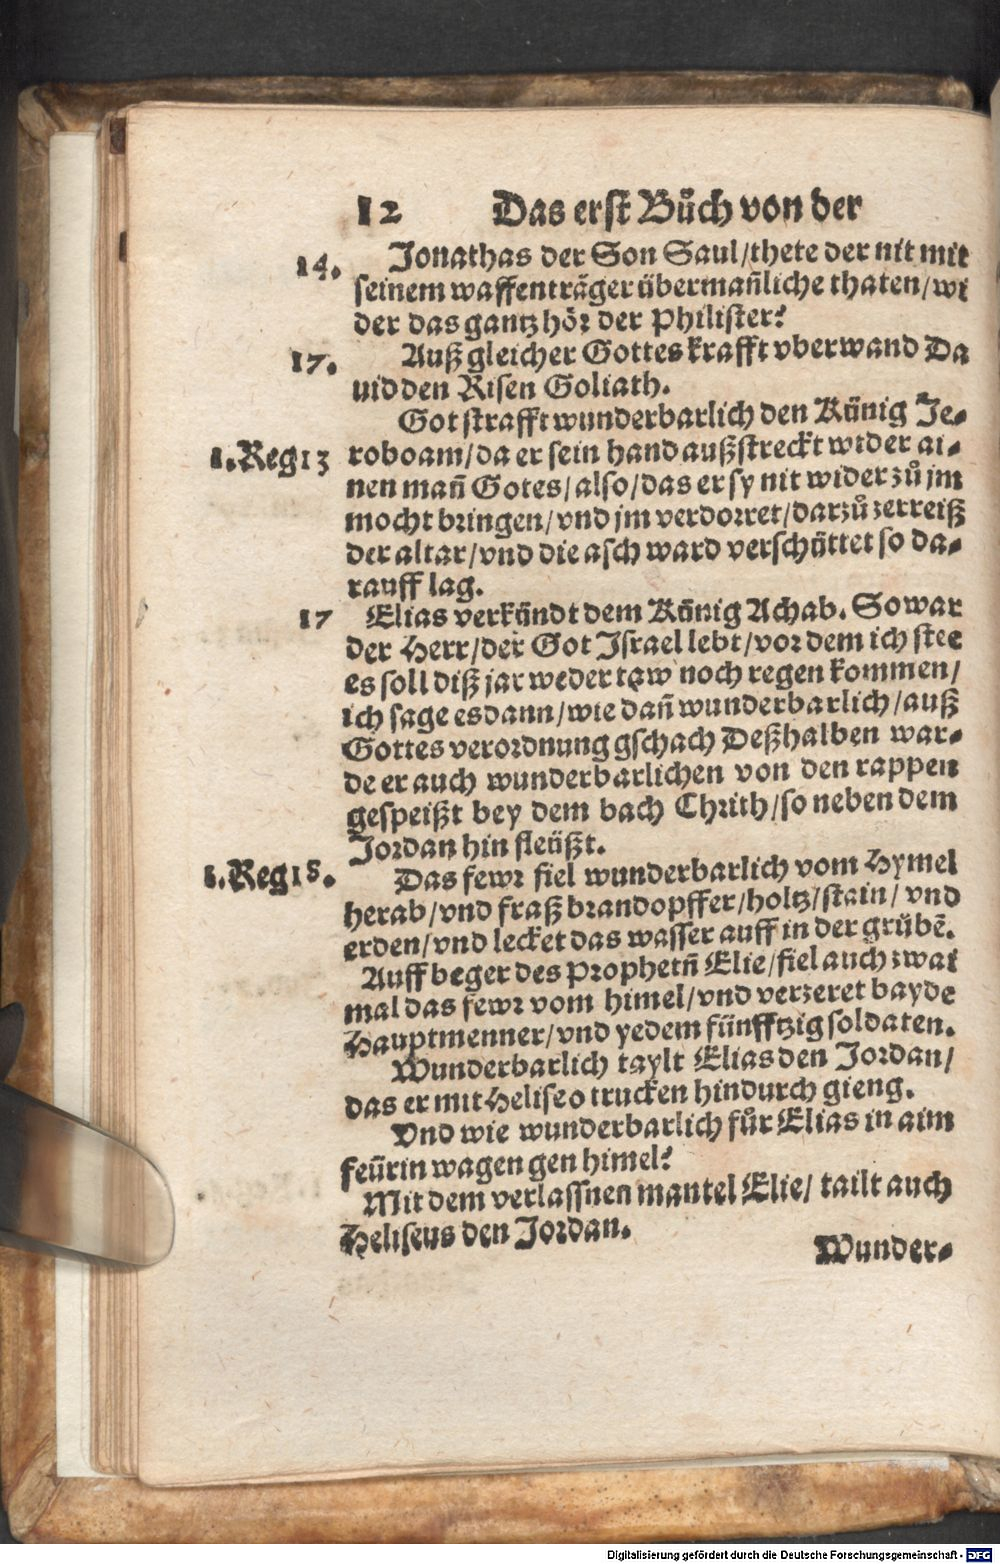 12 Das erst Bůch von der
14. Jonathas der Son Saul/thete der nit mit
seinem waffenträger übermañliche thaten/wi
der das gantz hör der Philister?
17. Auß gleicher Gottes krafft vberwand Da
uid den Risen Goliath.
Got strafft wunderbarlich den Künig Je-
1.Reg13 roboam/da er sein hand außstreckt wider ai-
nen mañ Gotes/also/das er sy nit wider zů jm
mocht bringen/vnd jm verdorret/darzů zerreiß
der altar/vnd die asch ward verschüttet so da-
rauff lag.
17 Elias verkündt dem Künig Achab. So war
der Herr/der Got Israel lebt/vor dem ich stee
es soll diß jar weder taw noch regen kommen/
ich sage es dann/wie dañ wunderbarlich/auß
Gottes verordnung gschach Deßhalben war-
de er auch wunderbarlichen von den rappen
gespeißt bey dem bach Chrith/so neben dem
Jordan hin fleüßt.
1.Reg18. Das fewr fiel wunderbarlich vom Hymel
herab/vnd fraß brandopffer/holtz/stain/vnd
erden/vnd lecket das wasser auff in der grübẽ.
Auff beger des Prophetñ Elie/fiel auch zwai
mal das fewr vom himel/vnd verzeret bayde
Hauptmenner/vnd yedem fünfftzig soldaten.
Wunderbarlich taylt Elias den Jordan/
das er mit Heliseo trucken hindurch gieng.
Vnd wie wunderbarlich fůr Elias in aim
feürin wagen gen himel?
Mit dem verlassnen mantel Elie/ tailt auch
Heliseus den Jordan.
Wunder-
Digitalisierung gefördert durch die Deutsche Forschungsgemeinschaft - DFG